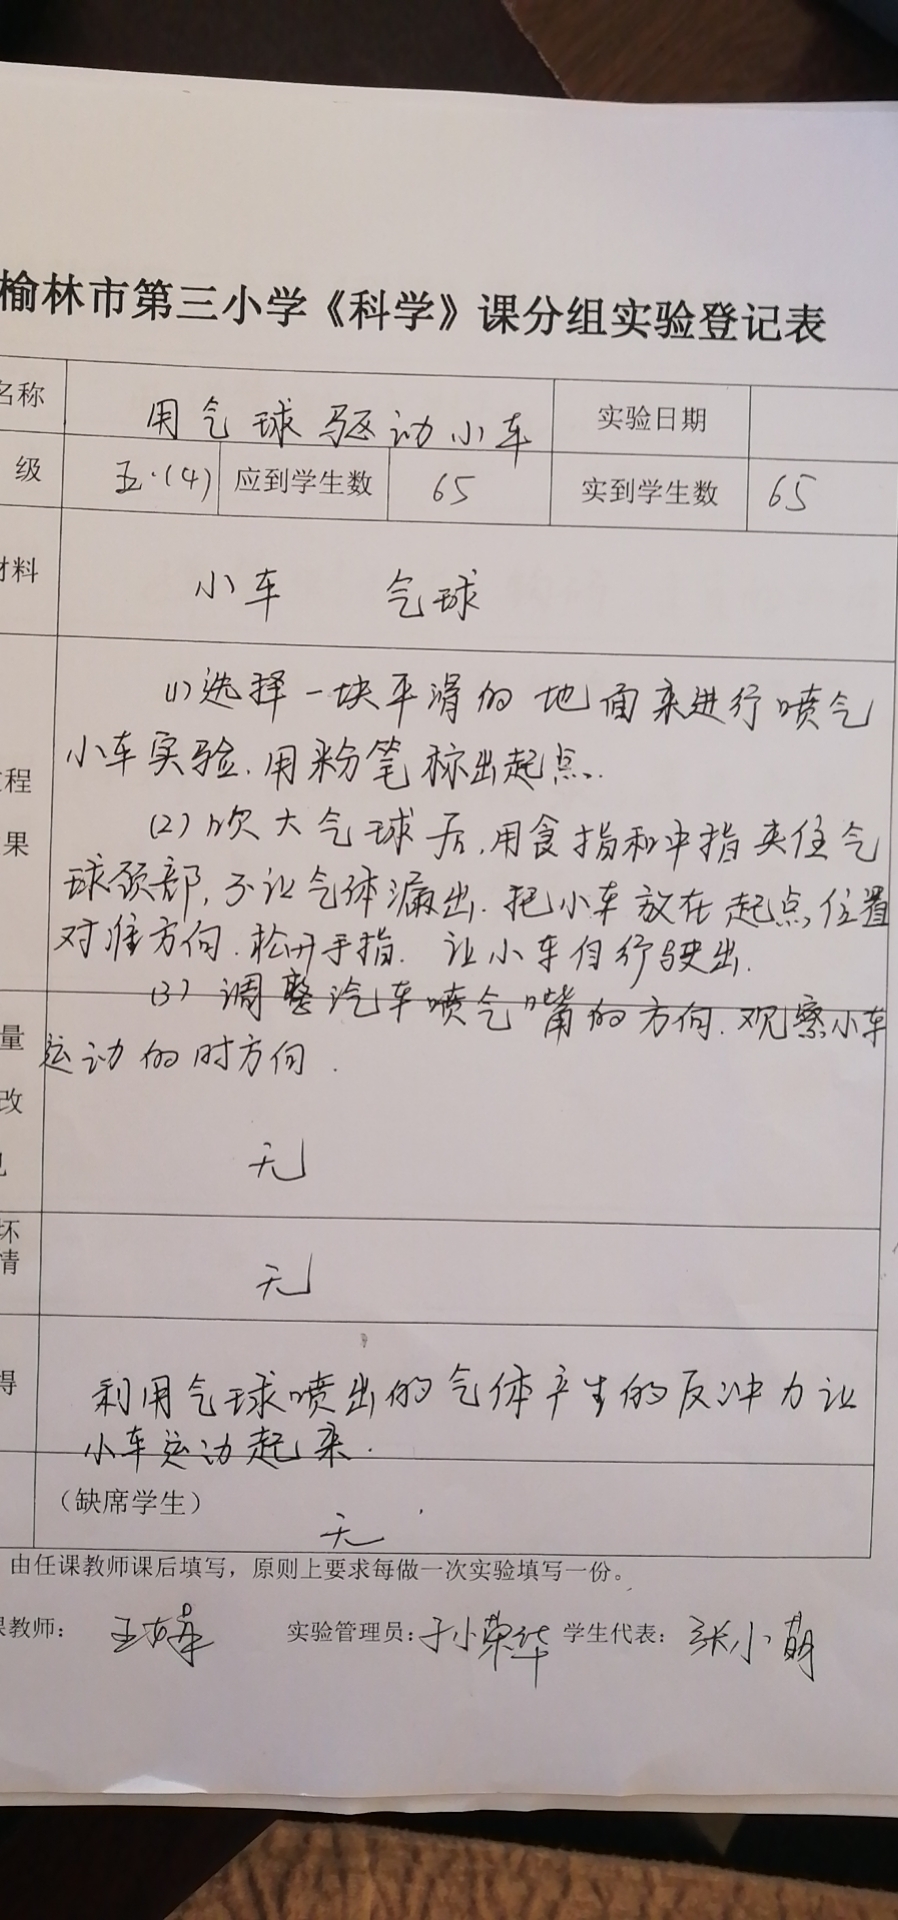 榆林市第三小学《科学》课分组实验登记表
名称 用气球驱动小车 实验日期
级 五·(4) 应到学生数 65 实到学生数 65
材料 小车 气球
(1)选择一块平滑的地面来进行喷气
小车实验.用粉笔标出起点.
程
果
(2)吹大气球后,用食指和中指夹住气
球颈部,不让气体漏出.把小车放在起点位置
对准方向.松开手指.让小车自行驶出.
(3)调整汽车喷气嘴的方向.观察小车
量 运动的时方向.
改
无
坏
情
无
得 利用气球喷出的气体产生的反冲力让
小车运动起来.
(缺席学生)
无
由任课教师课后填写，原则上要求每做一次实验填写一份。
课教师： 实验管理员：于小荣华 学生代表：张小萌